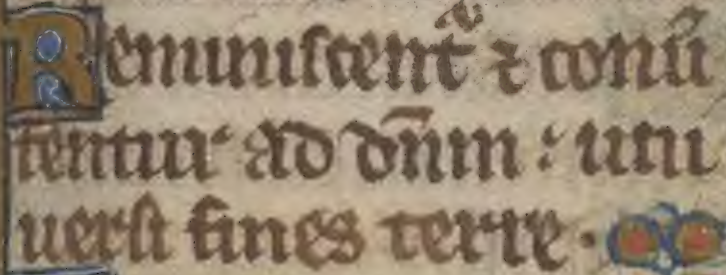 Reminiscent᷑ ⁊ conũ
tentur ad dn̄m : uni
uersi fines terre ·